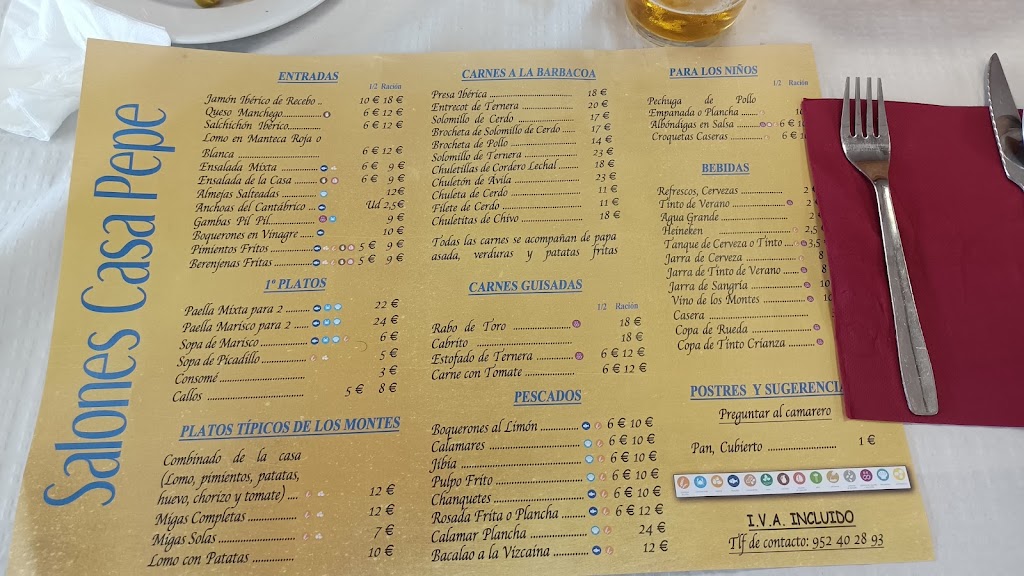 Salones Casa Pepe
ENTRADAS
1/2 Ración
Jamón Ibérico de Recebo .. 10 € 18 €
Queso Manchego 6 € 12 €
Salchichón Ibérico 6 € 12 €
Lomo en Manteca Roja o
Blanca 6 € 12 €
Ensalada Mixta 6 € 9 €
Ensalada de la Casa 6 € 9 €
Almejas Salteadas 12€
Anchoas del Cantábrico Ud 2,5€
Gambas Pil Pil 9 €
Boquerones en Vinagre 10 €
Pimientos Fritos 5 € 9 €
Berenjenas Fritas 5 € 9 €
1º PLATOS
Paella Mixta para 2 22 €
Paella Marisco para 2 24 €
Sopa de Marisco 6 €
Sopa de Picadillo 5 €
Consomé 3 €
Callos 5 € 8 €
PLATOS TÍPICOS DE LOS MONTES
Combinado de la casa
(Lomo, pimientos, patatas,
huevo, chorizo y tomate) 12 €
Migas Completas 12 €
Migas Solas 7 €
Lomo con Patatas 10 €
CARNES A LA BARBACOA
Presa Ibérica 18 €
Entrecot de Ternera 20 €
Solomillo de Cerdo 17 €
Brocheta de Solomillo de Cerdo 17 €
Brocheta de Pollo 14 €
Solomillo de Ternera 23 €
Chuletillas de Cordero Lechal 18 €
Chuletón de Avila 23 €
Chuleta de Cerdo 11 €
Filete de Cerdo 11 €
Chuletitas de Chivo 18 €
Todas las carnes se acompañan de papa
asada, verduras y patatas fritas
CARNES GUISADAS
1/2 Ración
Rabo de Toro 18 €
Cabrito 18 €
Estofado de Ternera 6 € 12 €
Carne con Tomate 6 € 12 €
PESCADOS
Boquerones al Limón 6 € 10 €
Calamares 6 € 10 €
Jibia 6 € 10 €
Pulpo Frito 6 € 10 €
Chanquetes 6 € 10 €
Rosada Frita o Plancha 6 € 12 €
Calamar Plancha 24 €
Bacalao a la Vizcaina 12 €
PARA LOS NIÑOS
1/2 Ración
Pechuga de Pollo
Empanada o Plancha 6
Albóndigas en Salsa 6
Croquetas Caseras 6
BEBIDAS
Refrescos, Cervezas 2
Tinto de Verano 2
Agua Grande 2
Heineken 2,5
Tanque de Cerveza o Tinto 3,5
Jarra de Cerveza 8
Jarra de Tinto de Verano 8
Jarra de Sangría 10
Vino de los Montes 10
Casera
Copa de Rueda
Copa de Tinto Crianza
POSTRES Y SUGERENCIA
Preguntar al camarero
Pan, Cubierto 1 €
I.V.A. INCLUIDO
Tlf de contacto: 952 40 28 93